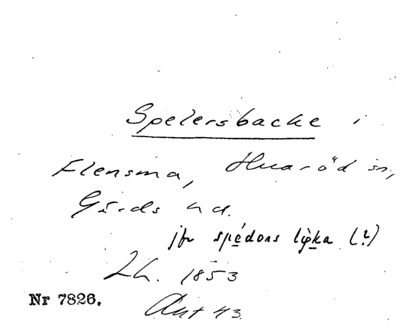 Spelersbacke i
Flensma, Huaröd sn,
Gärds hd.
jfr spédons lyka (?)
Lh. 1853
Nr 7826. Akt 43